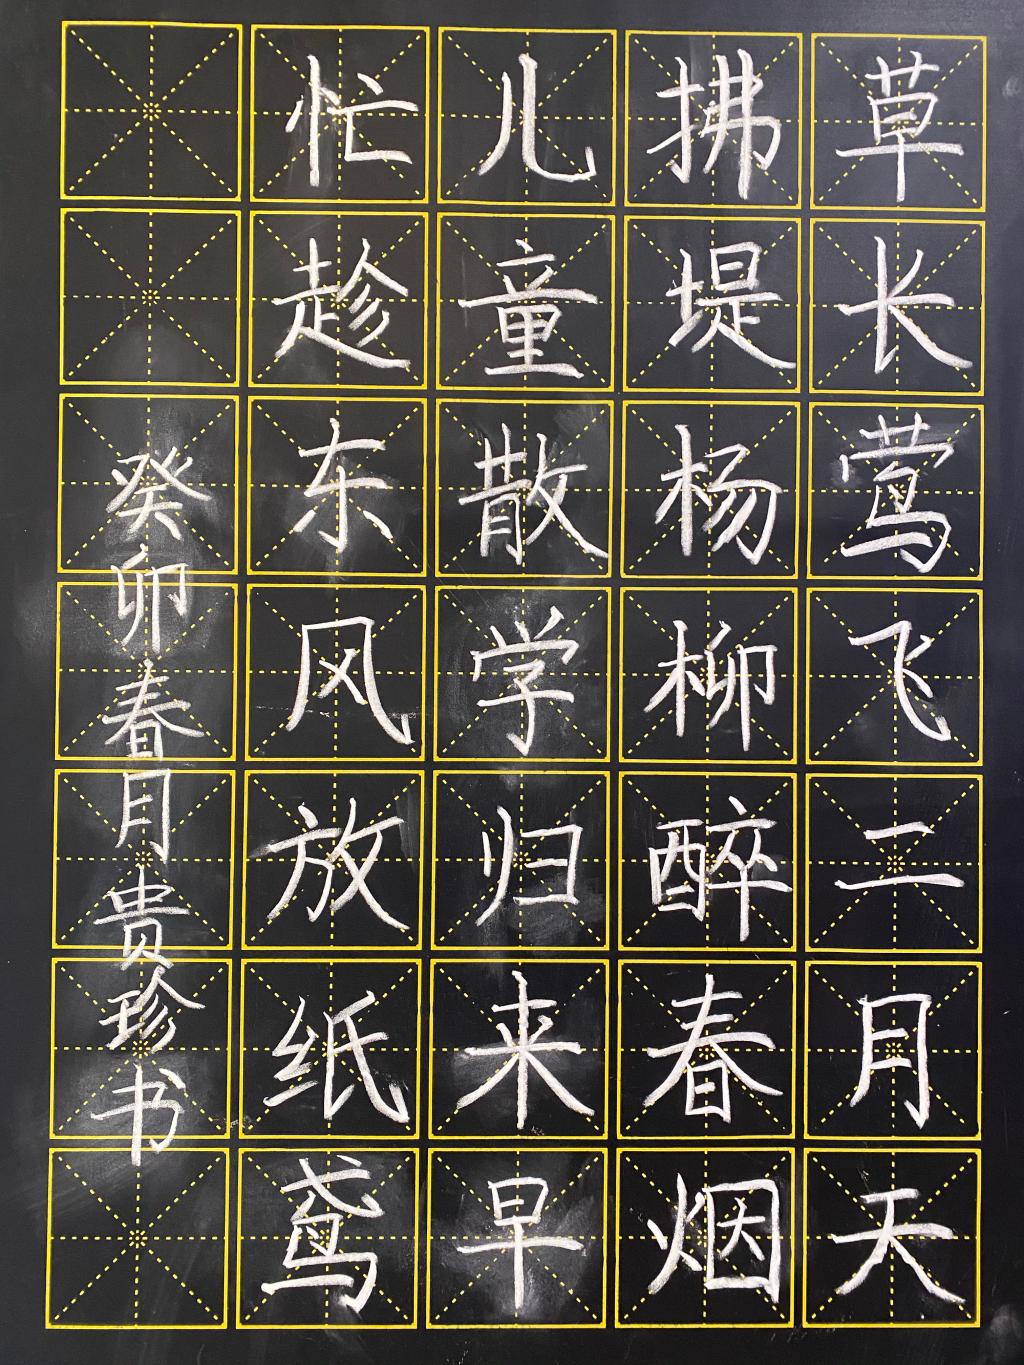 草长莺飞二月天
拂堤杨柳醉春烟
儿童散学归来早
忙趁东风放纸鸢
癸卯春月贵珍书